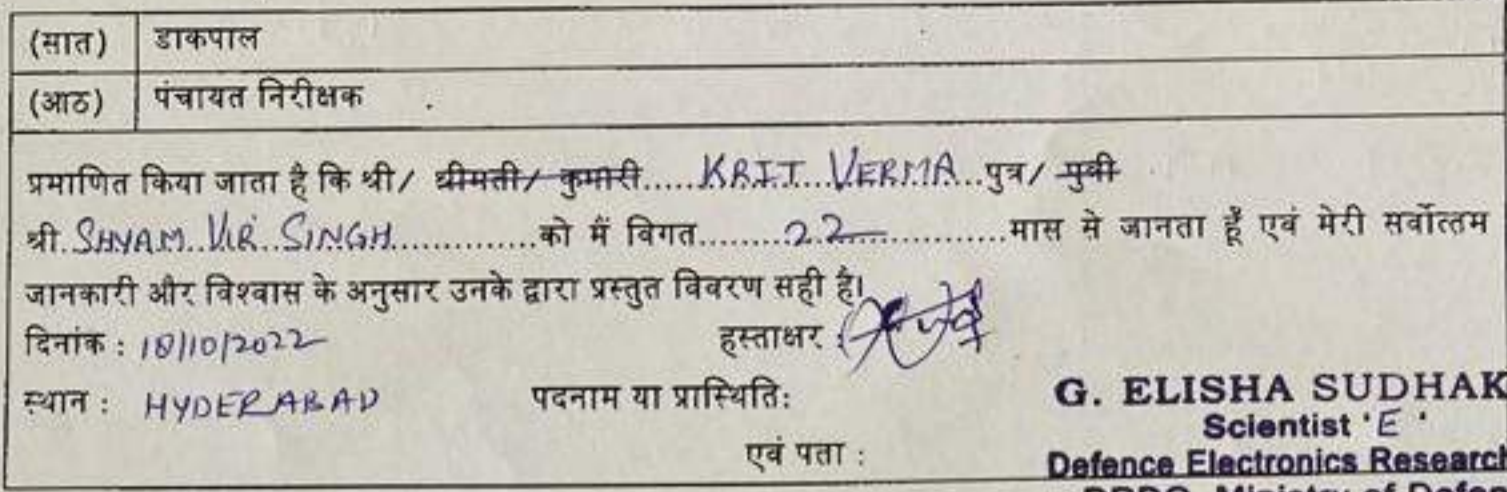 (सात) डाकपाल
(आठ) पंचायत निरीक्षक .
प्रमाणित किया जाता है कि श्री/ श्रीमती/ कुमारी.....KRIT VERMA..पुत्र/ पुत्री
श्री. SHYAM VIR SINGH..............को मैं विगत.........22................मास से जानता हूँ एवं मेरी सर्वोत्तम
जानकारी और विश्वास के अनुसार उनके द्वारा प्रस्तुत विवरण सही है।
दिनांक : 18/10/2022 हस्ताक्षर :
स्थान : HYDERABAD पदनाम या प्रास्थिति: G. ELISHA SUDHAK
Scientist 'E'
एवं पता : Defence Electronics Research
DRDO, Ministry of Defen